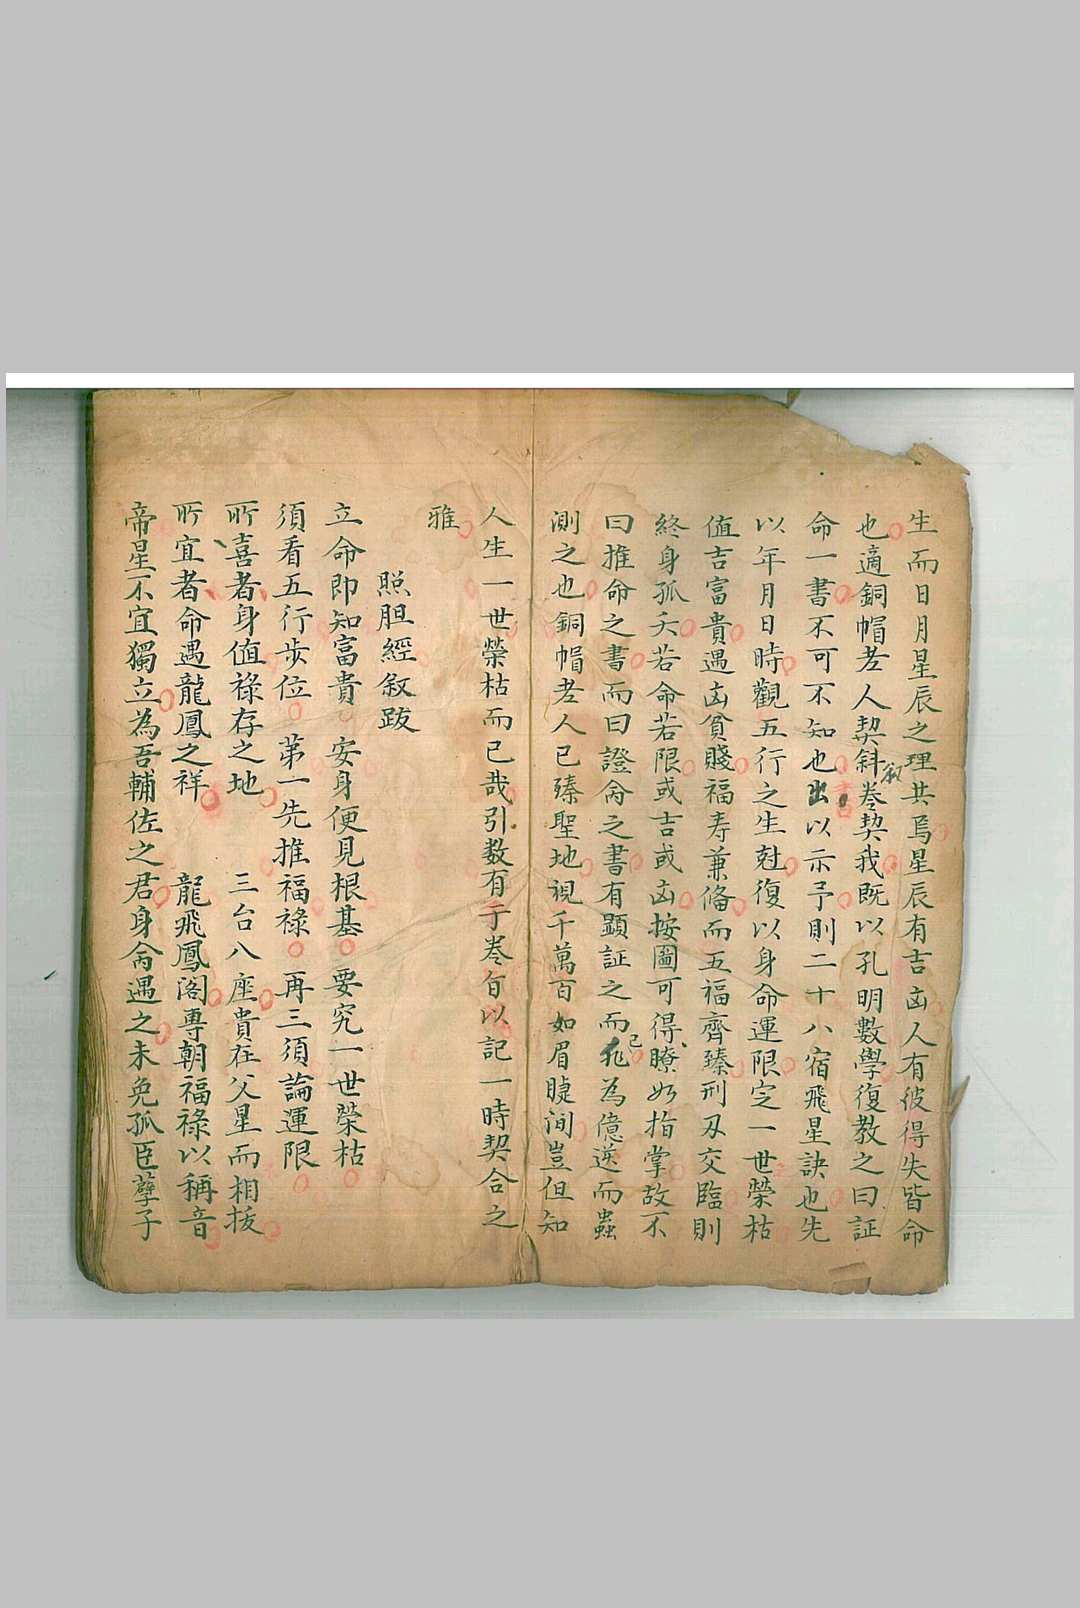 生而日月星辰之理共焉星辰有吉凶人有彼得失皆命
也適銅帽老人契斜叙卷契我既以孔明數學復教之曰証
命一書不可不知也出以示予則二十八宿飛星訣也先
以年月日時觀五行之生尅復以身命運限定一世榮枯
值吉富貴遇凶貧賤福寿兼俻而五福齊臻刑刃交臨則
終身孤夭若命若限或吉或凶按圖可得瞭如指掌故不
曰推命之書而曰證命之書有顯証之而已為億送而蟲
測之也銅帽老人已臻聖地視千萬百如眉睫间豈但知
人生一世榮枯而已哉引数有于卷旨以記一時契合之
雅
照胆經叙跋
立命即知富貴 安身便見根基 要究一世榮枯
須看五行步位 苐一先推福祿 再三須論運限
所喜者身值祿存之地 三台八座貴在父星而相扳
所宜者命遇龍鳳之祥 龍飛鳳阁専朝福祿以稱音
帝星不宜獨立為吾輔佐之君身命遇之未免孤臣孽子